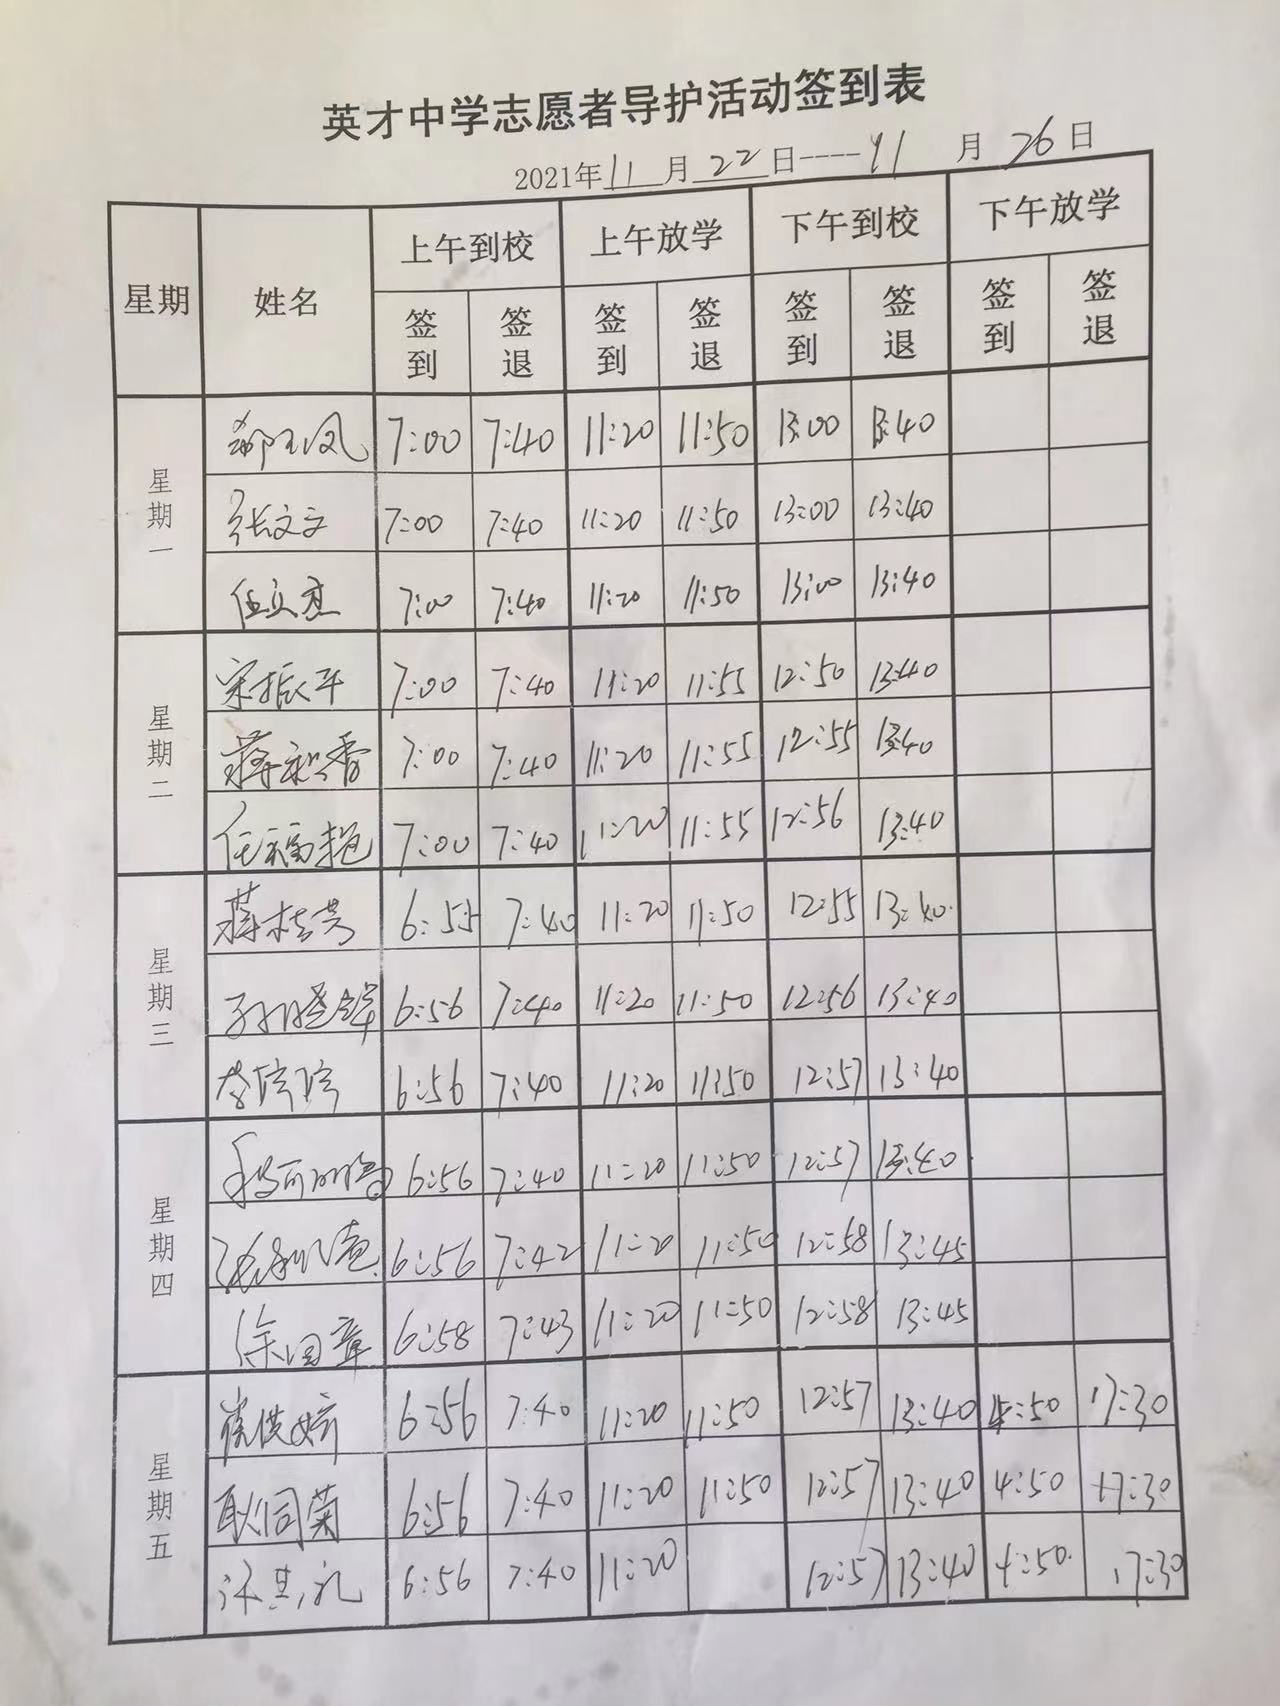 英才中学志愿者导护活动签到表
2021年11月22日----11月26日
星期 姓名 上午到校 上午放学 下午到校 下午放学
签到 签退 签到 签退 签到 签退 签到 签退
星期一
7:00 7:40 11:20 11:50 13:00 13:40
张文文 7:00 7:40 11:20 11:50 13:00 13:40
7:00 7:40 11:20 11:50 13:00 13:40
星期二
宋振平 7:00 7:40 11:20 11:55 12:50 13:40
7:00 7:40 11:20 11:55 12:55 13:40
任福艳 7:00 7:40 11:20 11:55 12:56 13:40
星期三
蒋桂芳 6:55 7:40 11:20 11:50 12:55 13:40
6:56 7:40 11:20 11:50 12:56 13:40
李婷婷 6:56 7:40 11:20 11:50 12:57 13:40
星期四
6:56 7:40 11:20 11:50 12:57 13:40
6:56 7:42 11:20 11:50 12:58 13:45
徐国章 6:58 7:43 11:20 11:50 12:58 13:45
星期五
6:56 7:40 11:20 11:50 12:57 13:40 4:50 17:30
耿同菊 6:56 7:40 11:20 11:50 12:57 13:40 4:50 17:30
6:56 7:40 11:20 12:57 13:40 4:50 17:30